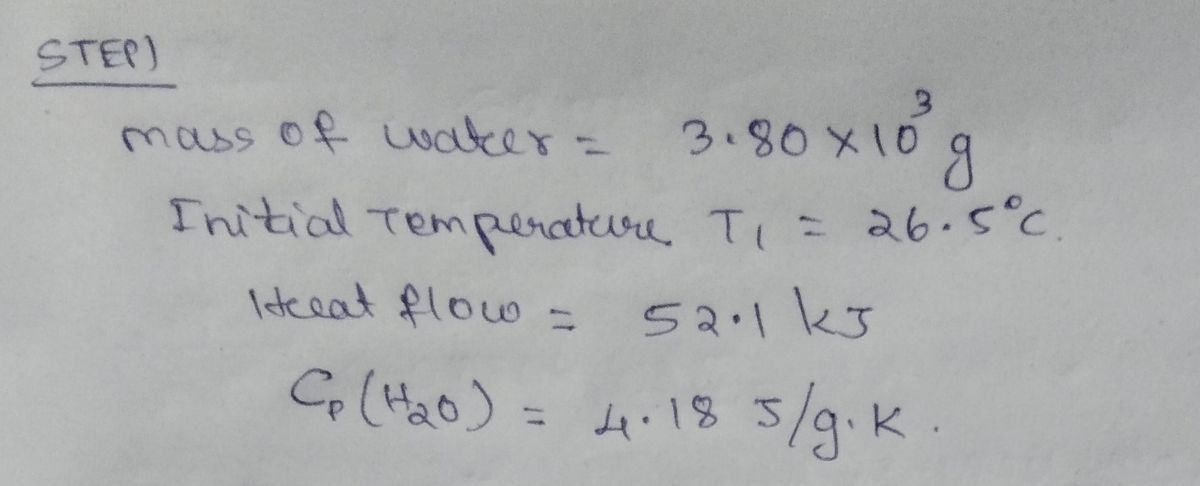 STEP)
mass of water = 3.80 × 10³ g
Initial Temperature T₁ = 26.5°C.
Heat flow = 52.1 kJ
Cp (H₂O) = 4.18 J/g.K.